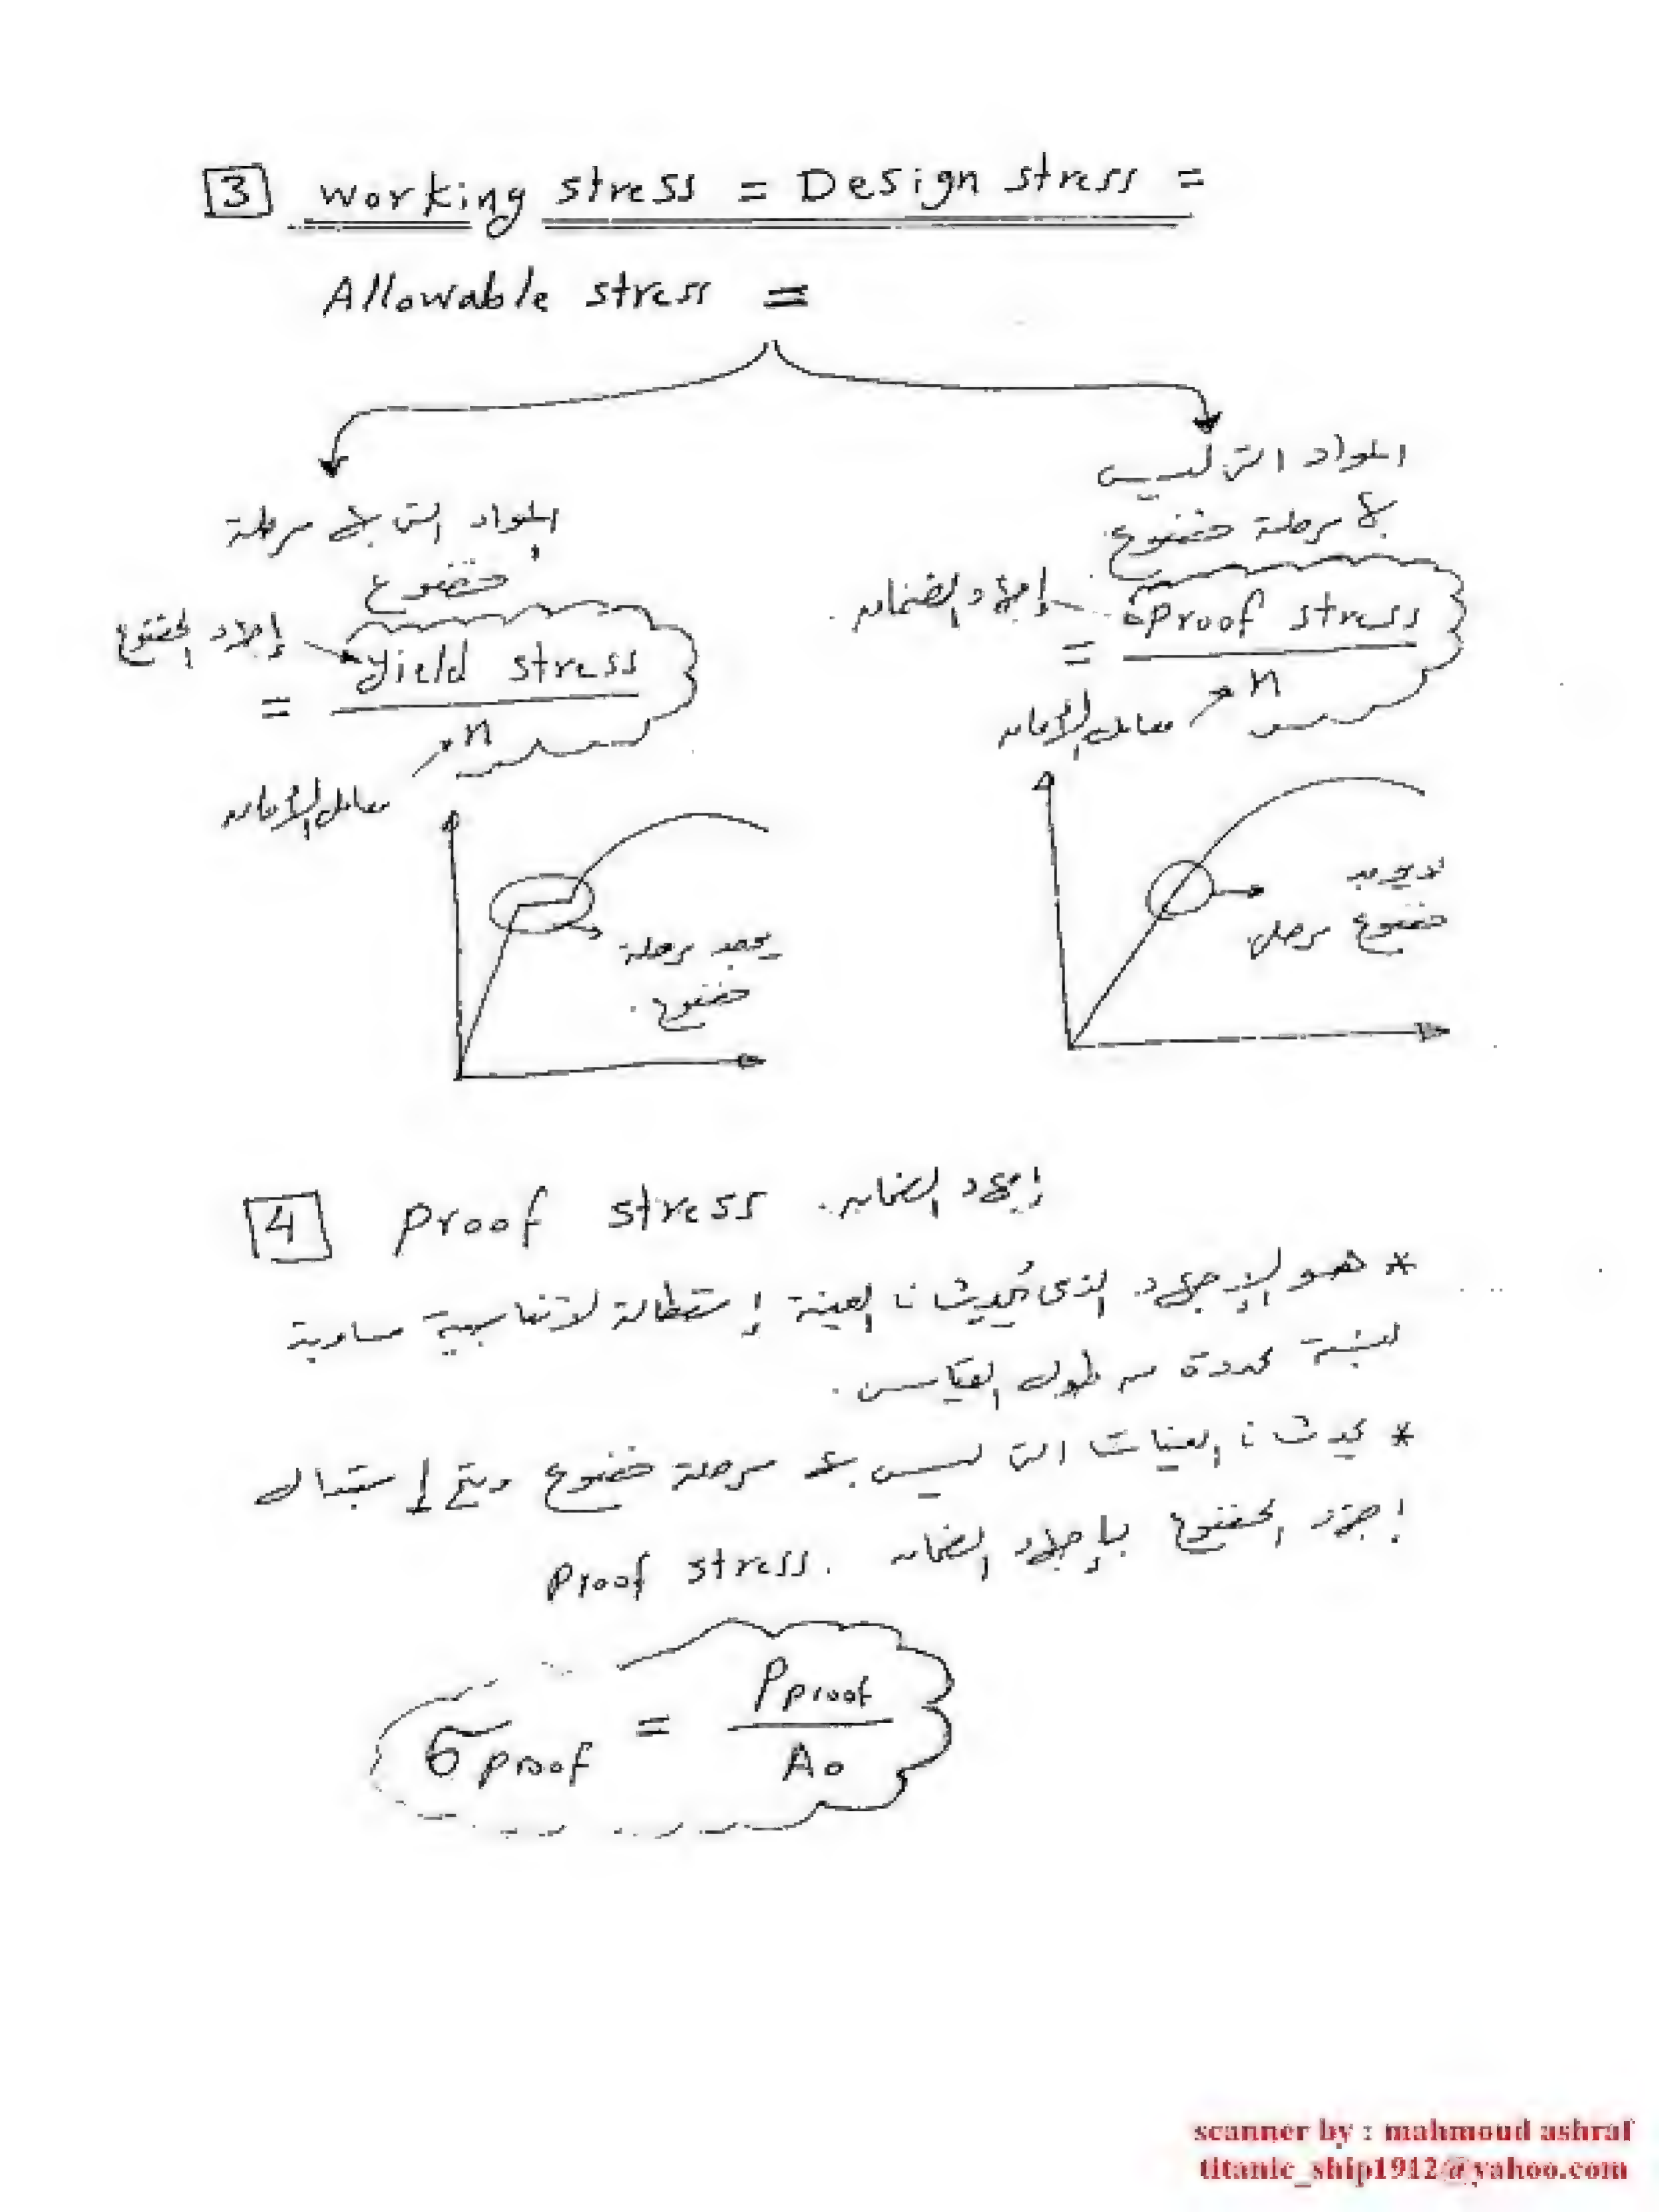 3 working stress = Design stress =
Allowable stress =
المواد التي لها مرحلة
خضوع
إجهاد الخضوع
= yield stress / n
معامل الأمان
يوجد مرحلة
خضوع.
المواد التي ليس
لها مرحلة خضوع
إجهاد الضمان
= proof stress / n
معامل الأمان
لا يوجد
مرحلة خضوع
4 proof stress إجهاد الضمان.
* هو الإجهاد الذى يُحدث فى العينة إستطالة لاتناسبية مساوية
لنسبة محددة من طول القياس.
* يحدث فى العينات التى ليس بها مرحلة خضوع ويتم إستبدال
إجهاد الخضوع بإجهاد الضمان proof stress.
σproof = Pproof / Ao
scanner by : mahmoud ashraf
titanic_ship1912@yahoo.com